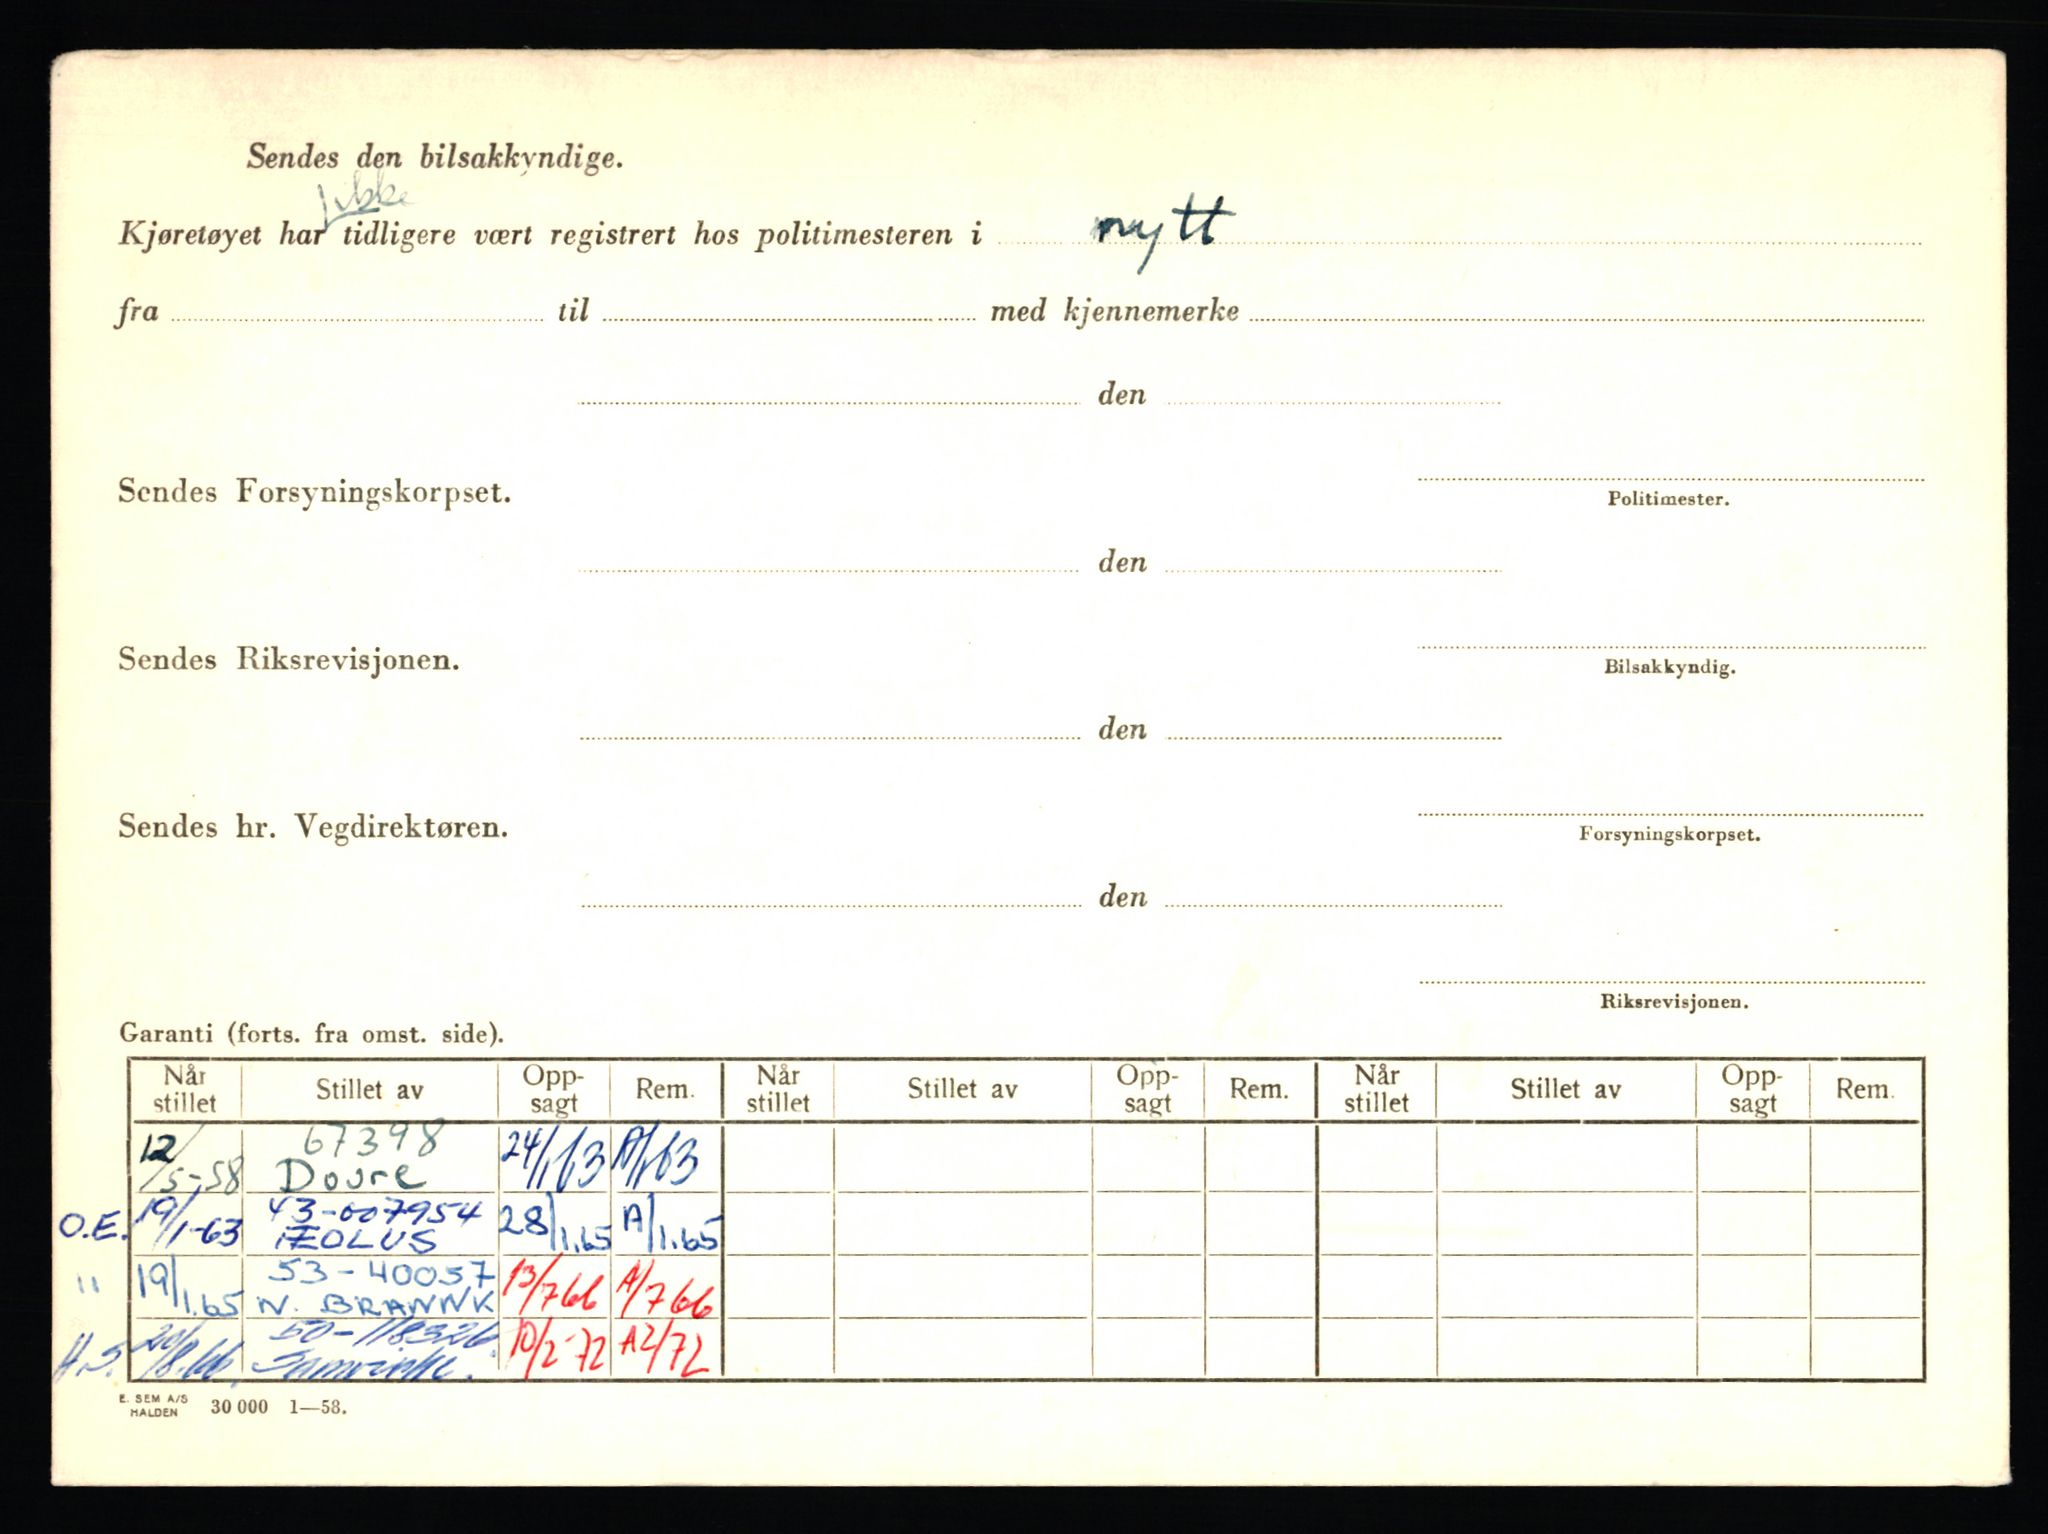 Sendes den bilsakkyndige.
ikke
Kjøretøyet har tidligere vært registrert hos politimesteren i nytt
fra til med kjennemerke
den
Sendes Forsyningskorpset.
Politimester.
den
Sendes Riksrevisjonen.
Bilsakkyndig.
den
Sendes hr. Vegdirektøren.
Forsyningskorpset.
den
Riksrevisjonen.
Garanti (forts. fra omst. side).
Når stillet Stillet av Opp-sagt Rem. Når stillet Stillet av Opp-sagt Rem. Når stillet Stillet av Opp-sagt Rem.
12/5-58 67398 Dovre 24/1 63 A/1 63
O.E. 19/1-63 43-007954 ÆOLUS 28/1.65 A/1.65
" 19/1.65 53-40057 N. BRANNK 13/7 66 A/7 66
H.S. 20/8.66. 50-118326. Samvirke. 10/2-72 A2/72
E. SEM A/S
HALDEN 30 000 1—58.